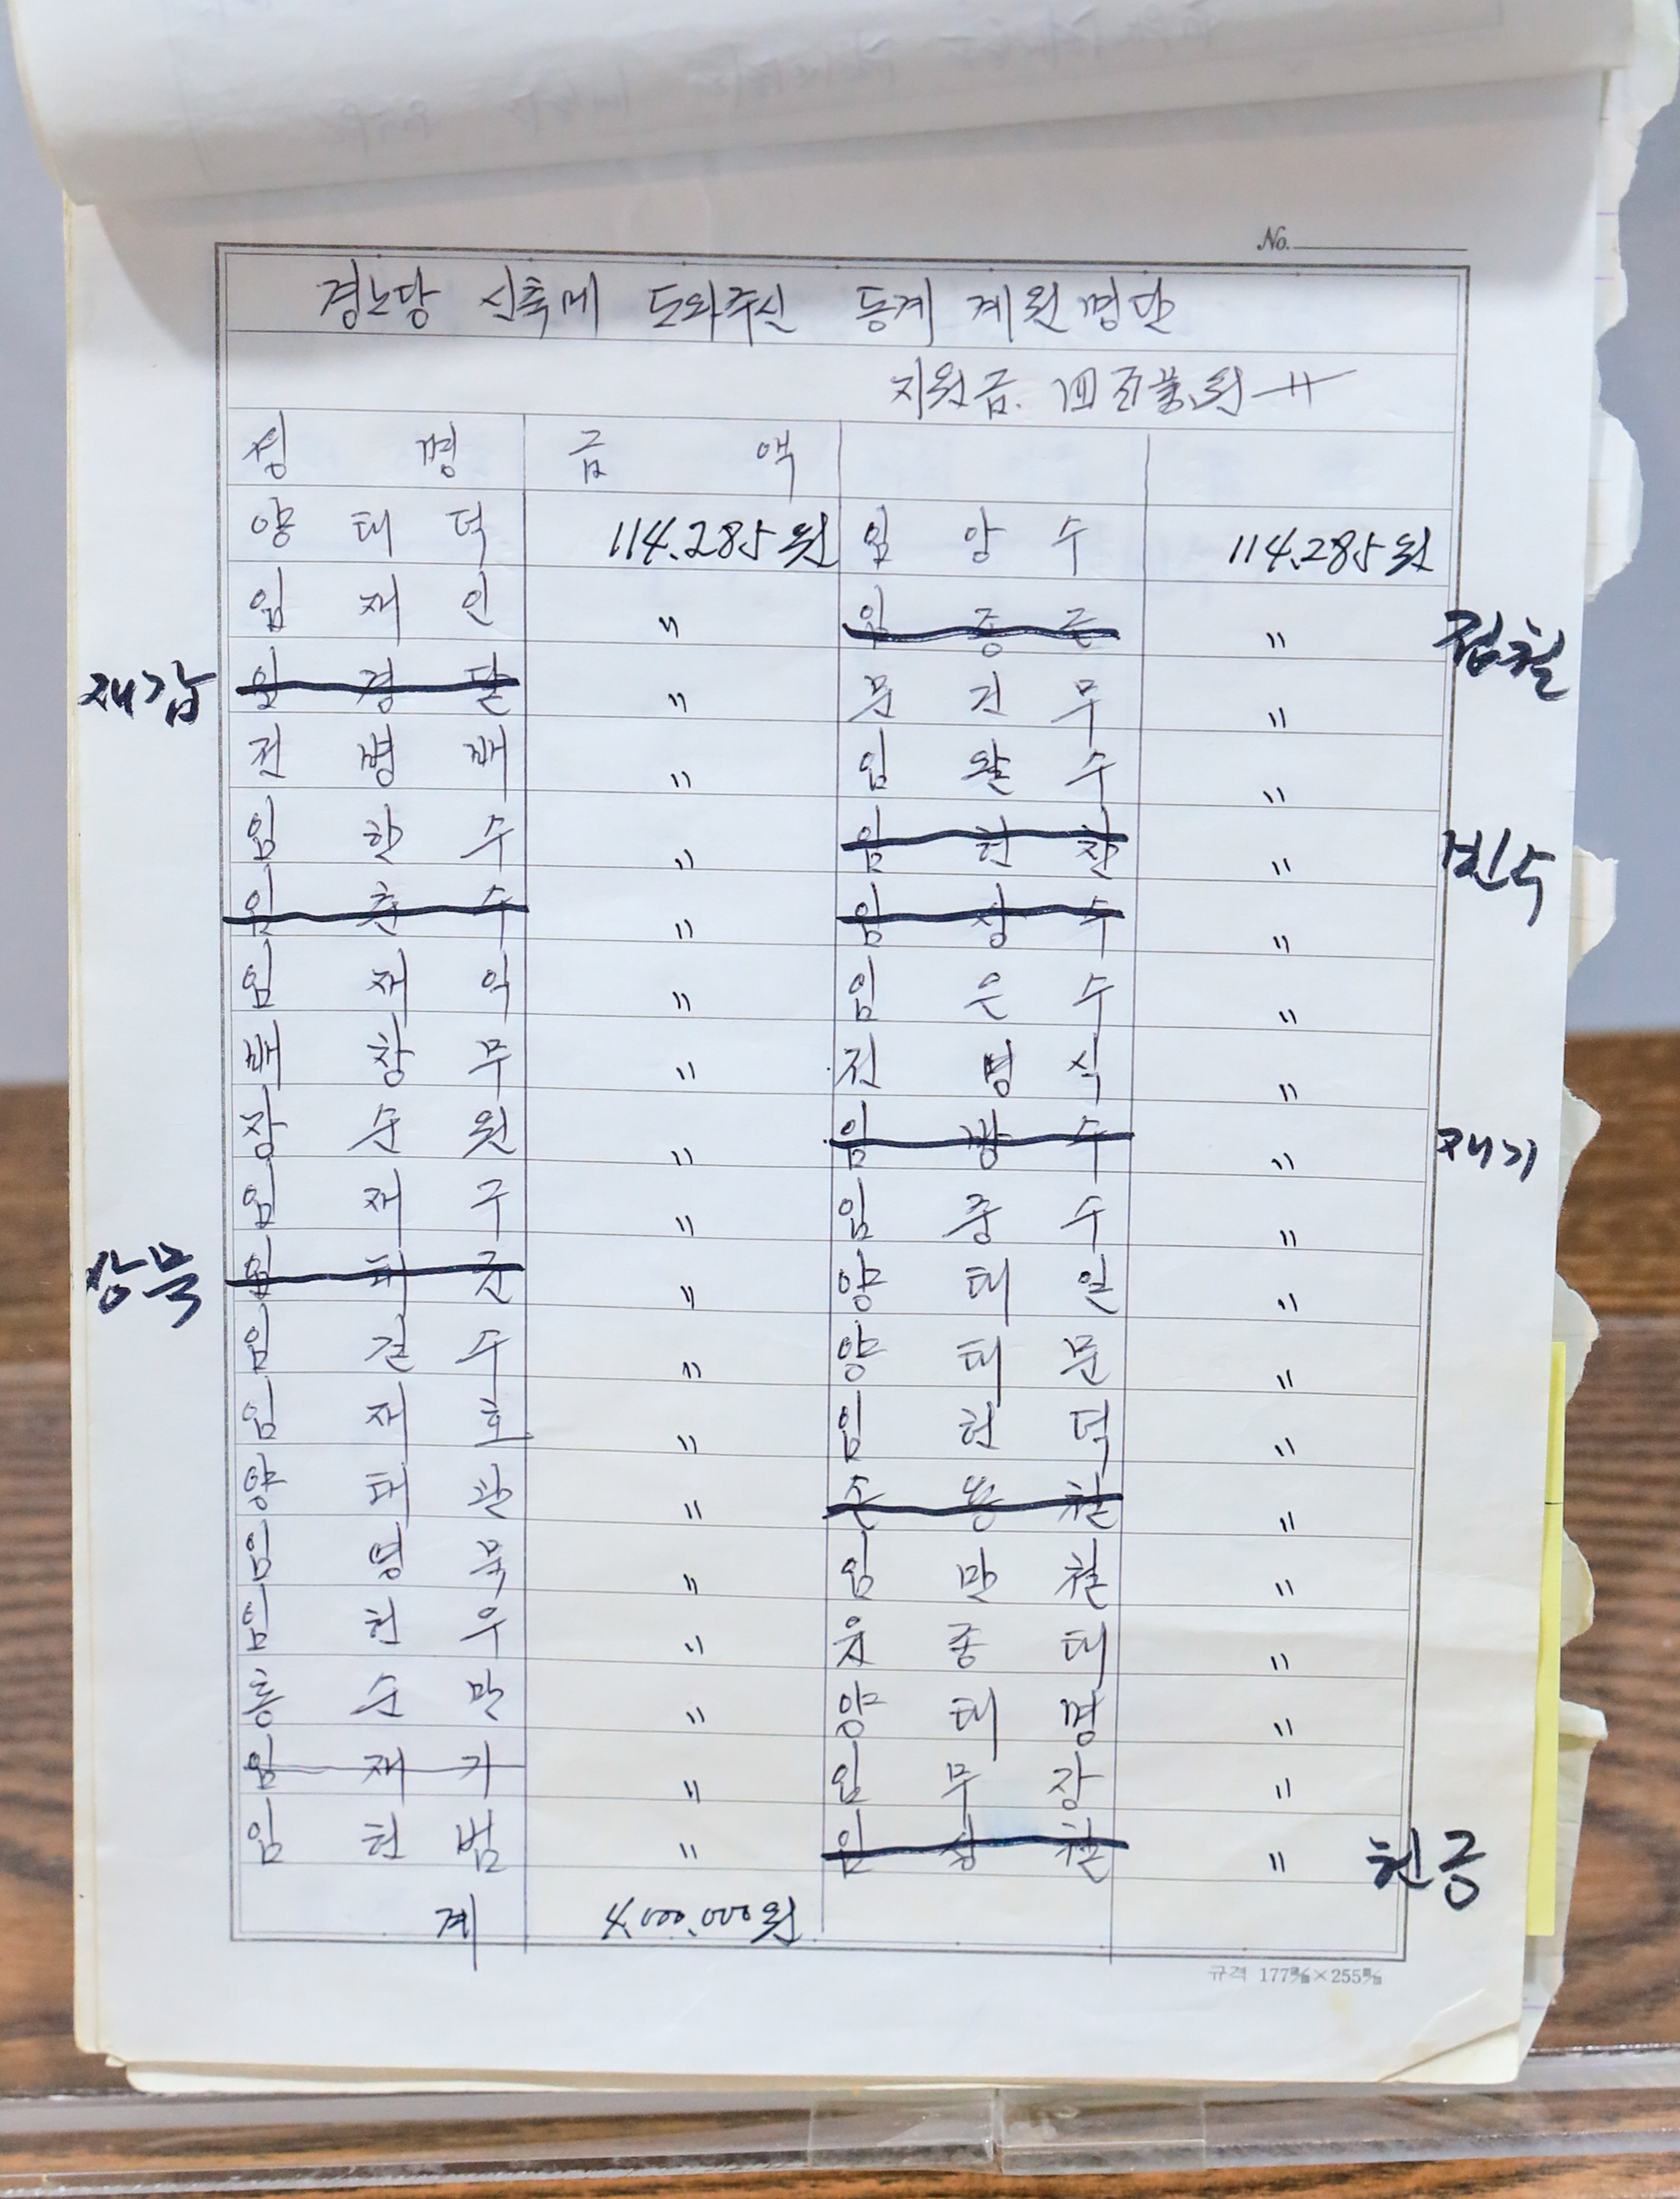 No.
경노당 신축에 도와주신 동계 계원명단
지원금. 四百萬원
성 명 금 액
양 태 덕 114.285원 임 앙 수 114.285원
임 재 인 〃 임 종 근 〃 점철
재갑 임 경 달 〃 문 건 무 〃
전 병 배 〃 임 왈 수 〃
임 한 수 〃 임 현 찬 〃 빈수
임 춘 수 〃 임 상 수 〃
임 재 익 〃 임 은 수 〃
배 창 무 〃 전 병 식 〃
장 순 원 〃 임 방 수 〃 재기
임 재 구 〃 임 중 수 〃
상묵 임 태 근 〃 양 태 일 〃
임 길 수 〃 양 태 문 〃
임 재 호 〃 임 현 덕 〃
양 태 관 〃 손 용 철 〃
임 병 묵 〃 임 만 철 〃
임 헌 우 〃 윤 종 태 〃
홍 순 만 〃 양 태 명 〃
임 재 가 〃 임 무 장 〃
임 헌 범 〃 임 상 철 〃 헌긍
계 4.000.000원
규격 177㎜×255㎜